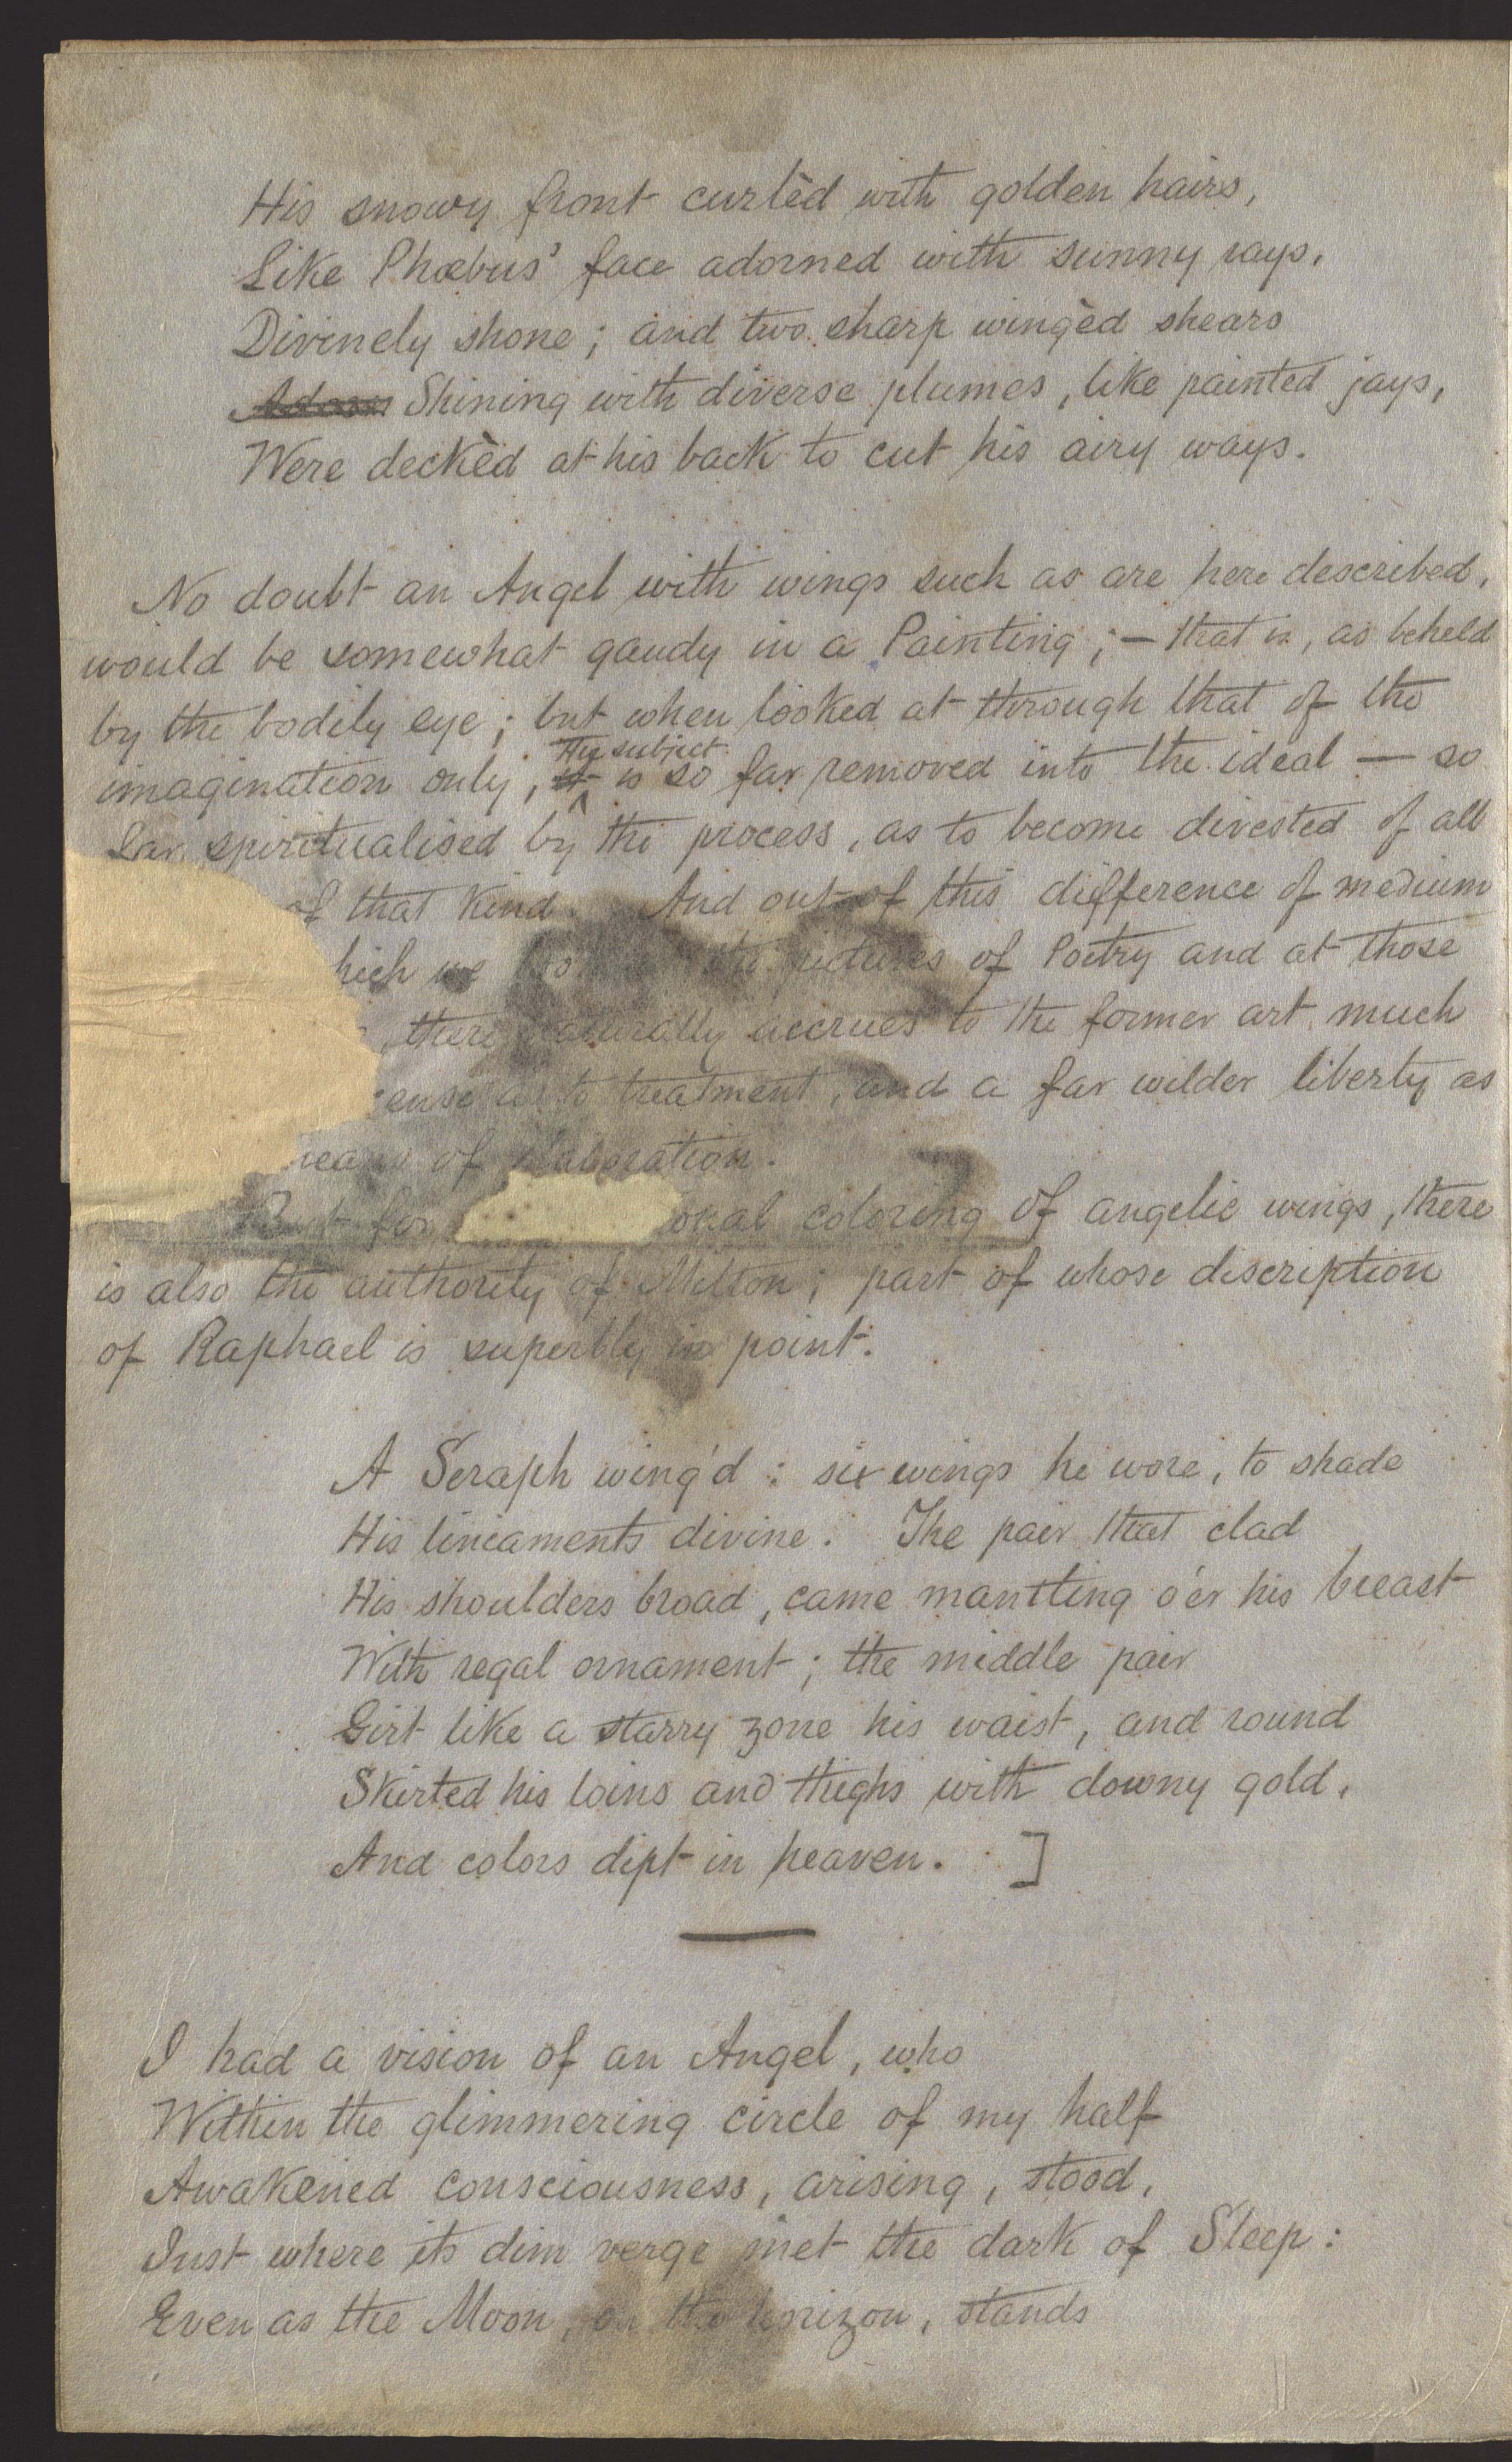 His snowy front curlèd with golden hairs,
Like Phœbus' face adorned with sunny rays,
Divinely shone; and two sharp wingèd shears
Shining with diverse plumes, like painted jays,
Were deckèd at his back to cut his airy ways.
No doubt an Angel with wings such as are here described,
would be somewhat gaudy in a Painting; — that is, as beheld
by the bodily eye; but when looked at through that of the
The subject
imagination only, it is so far removed into the ideal — so
far spiritualised by the process, as to become divested of all
of that kind. And out of this difference of medium
hich we the pictures of Poetry and at those
there naturally accrues to the former art much
cense as to treatment, and a far wilder liberty as
means of elaboration.
But for onal coloring of angelic wings, there
is also the authority of Milton; part of whose discription
of Raphael is superbly in point.
A Seraph wing'd: six wings he wore, to shade
His lineaments divine. The pair that clad
His shoulders broad, came mantling o'er his breast
With regal ornament; the middle pair
Girt like a starry zone his waist, and round
Skirted his loins and thighs with downy gold,
And colors dipt in heaven. ]
I had a vision of an Angel, who
Within the glimmering circle of my half
Awakened consciousness, arising, stood,
Just where its dim verge met the dark of Sleep:
Even as the Moon, on the horizon, stands